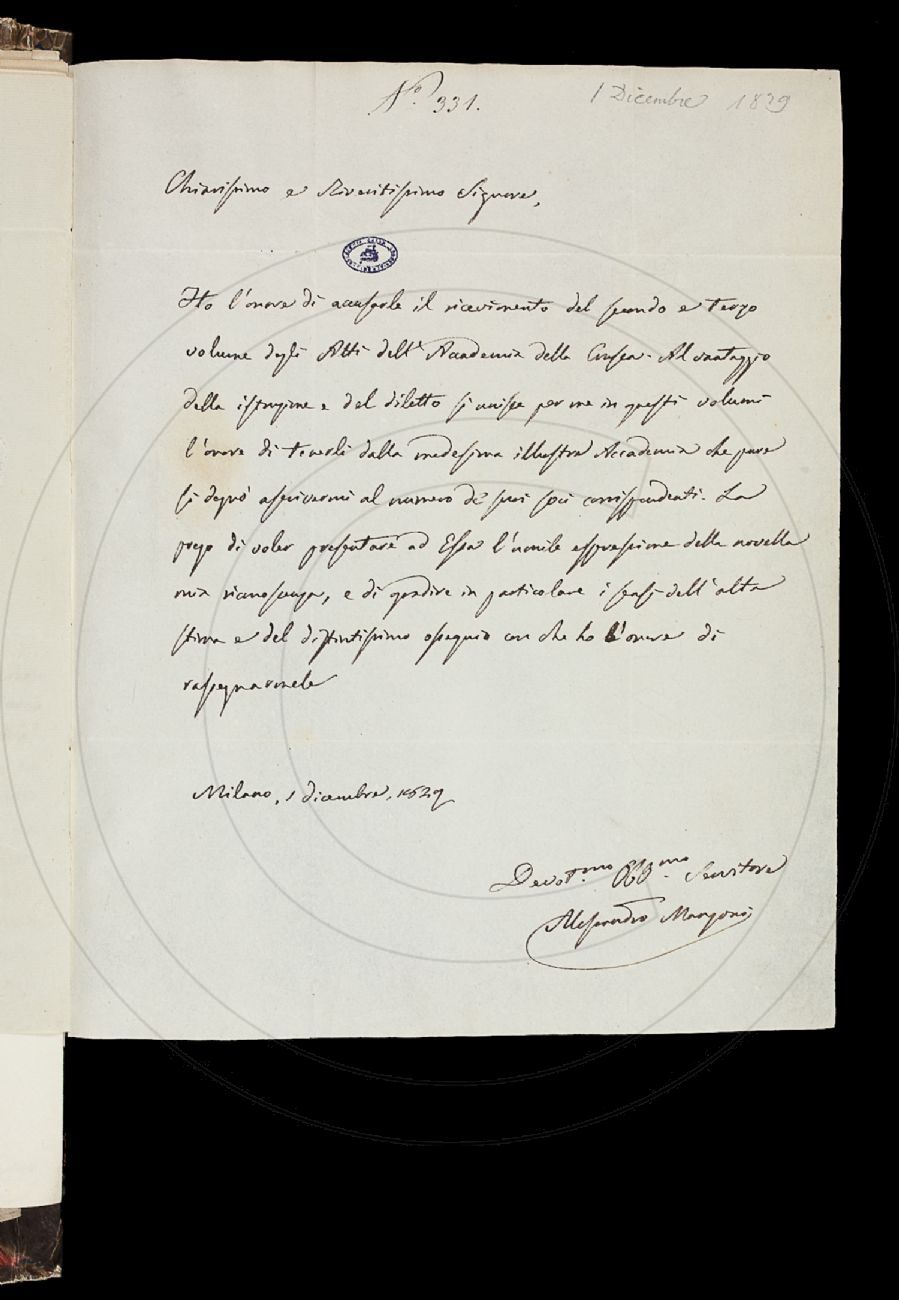 N.º 331.
1 Dicembre 1829
Chiarissimo e Riveritissimo Signore,
Ho l'onore di accusarle il ricevimento del secondo e terzo
volume degli Atti dell' Accademia della Crusca. Al vantaggio
della istruzione e del diletto si unisce per me in questi volumi
l'onore di tenerli dalla medesima illustre Accademia che pure
si degnò ascrivermi al numero de' suoi socii corrispondenti. La
prego di voler presentare ad Essa l'umile espressione della novella
mia riconoscenza, e di gradire in particolare i sensi dell' alta
stima e del distintissimo ossequio con che ho l'onore di
rassegnarmele
Milano, 1 dicembre, 1829
Devot.mo Obb.mo Servitore
Alessandro Manzoni